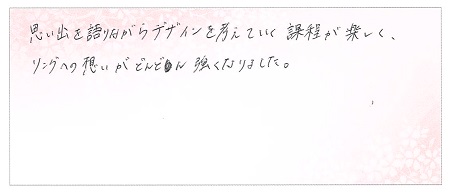 思い出を語りながらデザインを考えていく課程が楽しく、
リングへの想いがどんどん強くなりました。